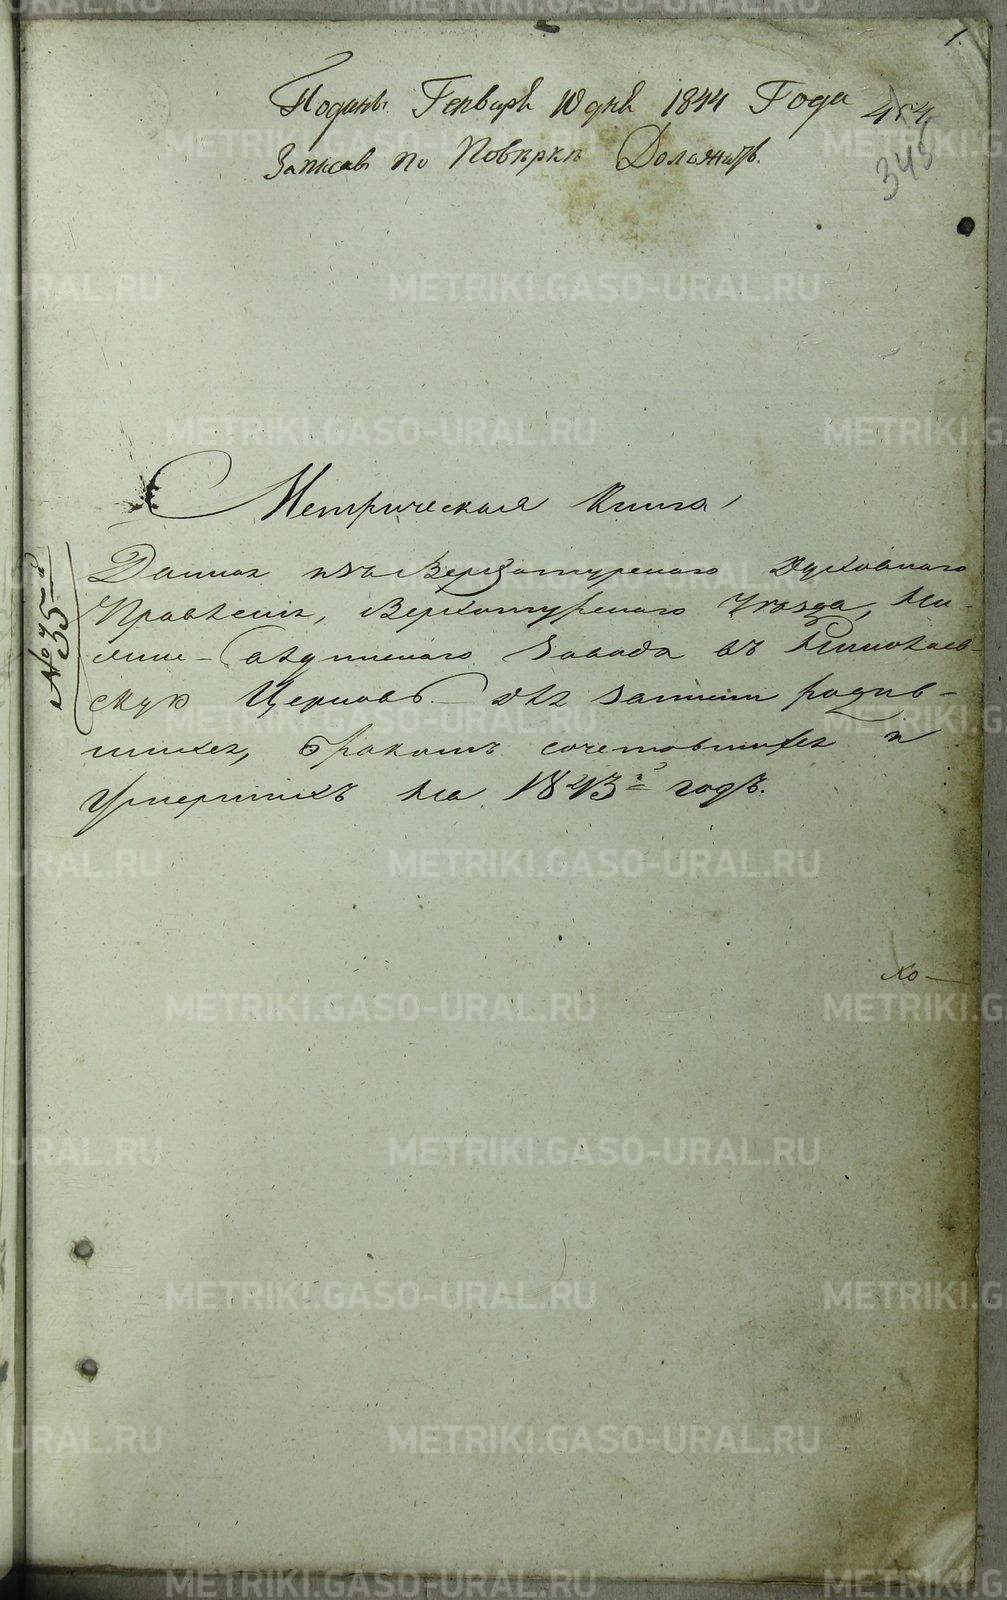 1.
Поданы Генваря 10 дня 1844 Года
454
Записавъ по Повѣркѣ Доложить.
343
Метрическая Книга
№ 35-й
Данная изъ Верхотурскаго Духовнаго
Правленія, Верхотурскаго Уѣзда, Ни-
жне-Салдинскаго Завода въ Николаев-
скую Церковь для записи родив-
шихся, бракомъ сочетавшихся и
Умершихъ на 1843й годъ.
Ко-
METRIKI.GASO-URAL.RU